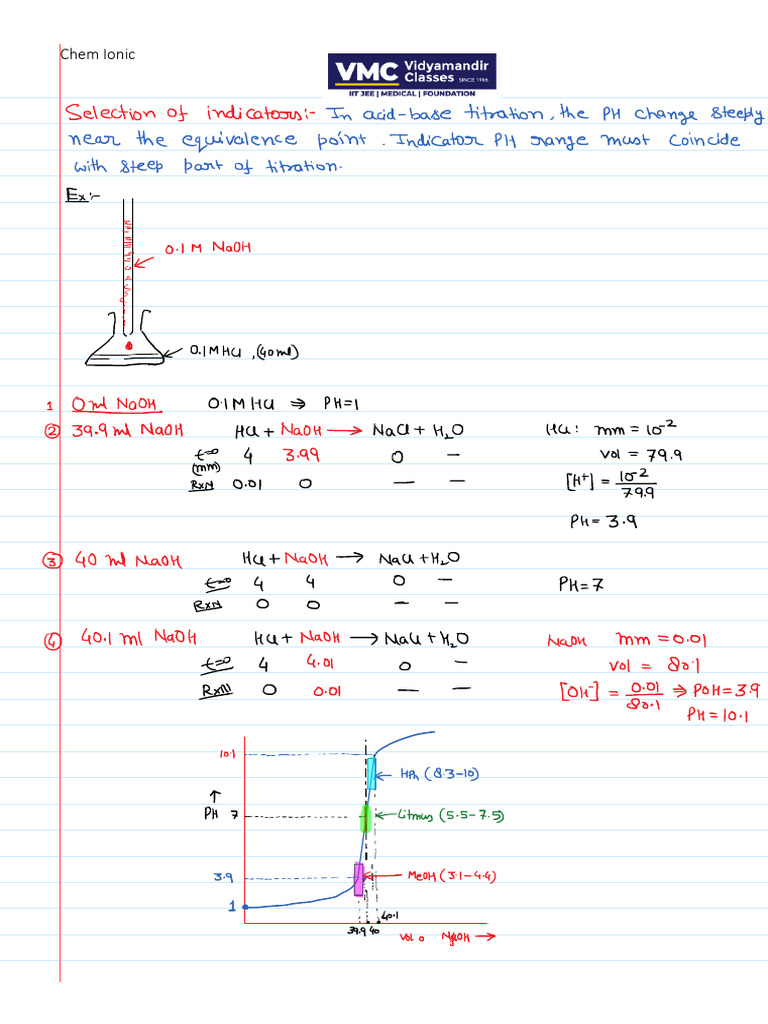 Chem Ionic
VMC Vidyamandir Classes SINCE 1986
IIT JEE | MEDICAL | FOUNDATION
Selection of indicators:- In acid-base titration, the PH change steeply
near the equivalence point. Indicator PH range must coincide
with steep part of titration.
Ex:-
0.1 M NaOH
0.1 M HCl, (40 ml)
1 0 ml NaOH 0.1 M HCl ⇒ PH=1
② 39.9 ml NaOH HCl + NaOH → NaCl + H2O HCl: mm = 10^-2
t=0 4 3.99 0 - vol = 79.9
(mm)
RxN 0.01 0 — — [H+] = 10^-2/79.9
PH = 3.9
③ 40 ml NaOH HCl + NaOH → NaCl + H2O
t=0 4 4 0 - PH=7
RxN 0 0 — —
④ 40.1 ml NaOH HCl + NaOH → NaCl + H2O NaOH mm = 0.01
t=0 4 4.01 0 - vol = 80.1
RxN 0 0.01 — — [OH-] = 0.01/80.1 ⇒ POH = 3.9
PH = 10.1
10.1
HPh (8.3-10)
↑
PH 7 Litmus (5.5-7.5)
3.9 MeOH (3.1-4.4)
1
40.1
39.9 40
NaOH →